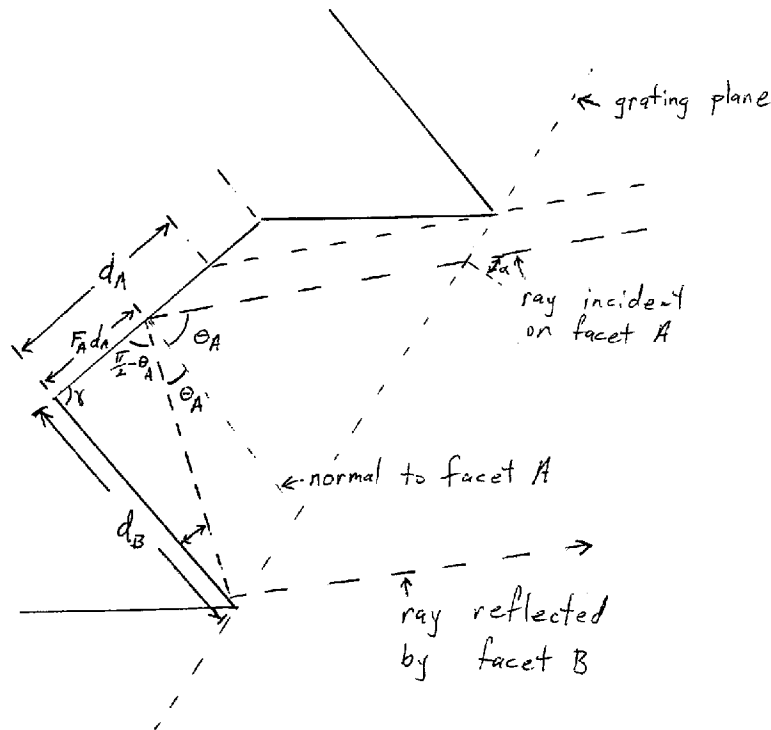 grating plane
d_A
F_A d_A
α
ray incident
on facet A
θ_A
π/2 - θ_A
γ
θ_A
normal to facet A
d_B
ray reflected
by facet B